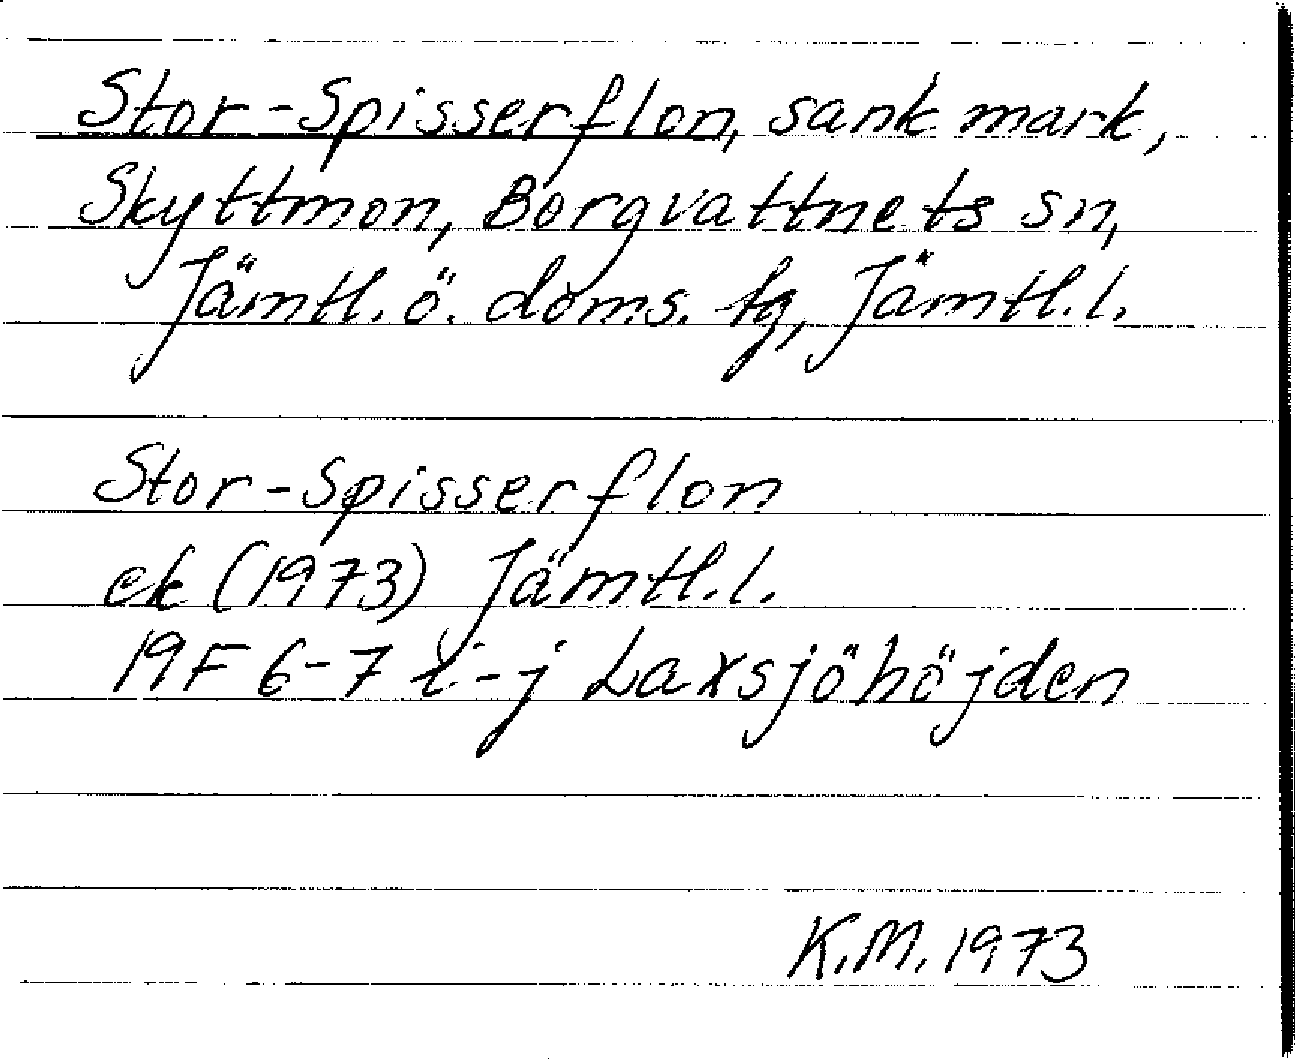 Stor-Spisserflon, sank mark,
Skyttmon, Borgvattnets sn,
Jämtl. ö. doms. fg, Jämtl. l.
Stor-Spisserflon
ek (1973) Jämtl. l.
19F 6-7 i-j Laxsjöhöjden
K.M. 1973